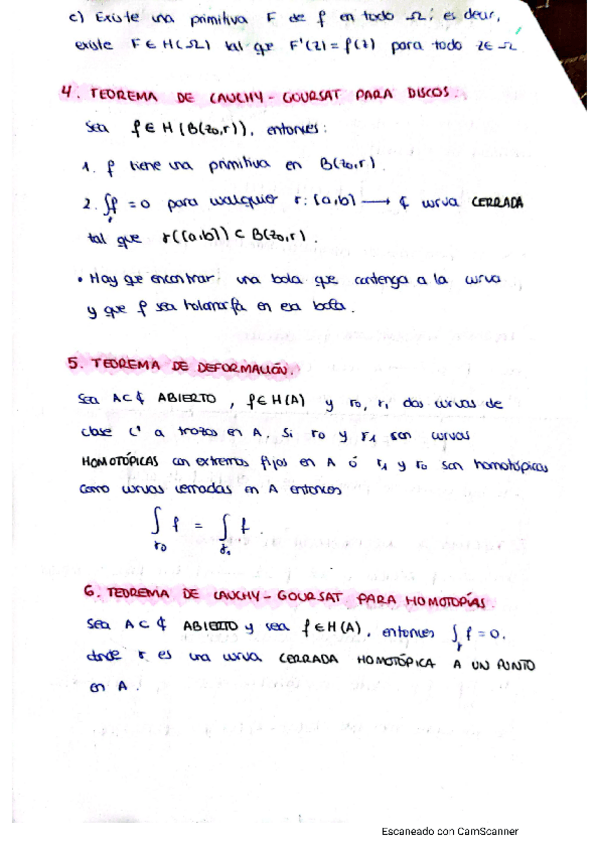 c) Existe una primitiva F de f en todo Ω; es decir,
existe F ∈ H(Ω) tal que F'(z) = f(z) para todo z∈Ω
4. TEOREMA DE CAUCHY-GOURSAT PARA DISCOS.
Sea f ∈ H(B(z₀,r)), entonces:
1. f tiene una primitiva en B(z₀,r).
2. ∫f = 0 para cualquier r: [a,b] → ₵ curva CERRADA
tal que r([a,b]) ⊂ B(z₀,r).
• Hay que encontrar una bola que contenga a la curva
y que f sea holomorfa en esa bola.
5. TEOREMA DE DEFORMACIÓN.
Sea A⊂₵ ABIERTO, f∈H(A) y r₀, r₁ dos curvas de
clase C¹ a trozos en A. Si r₀ y r₁ son curvas
HOMOTÓPICAS con extremos fijos en A ó r₁ y r₀ son homotópicas
como curvas cerradas en A entonces
∫ f = ∫ f.
r₀
6. TEOREMA DE CAUCHY-GOURSAT PARA HOMOTOPÍAS.
Sea A⊂₵ ABIERTO y sea f∈H(A), entonces ∫ᵣ f = 0.
donde r es una curva CERRADA HOMOTÓPICA A UN PUNTO
en A.
Escaneado con CamScanner